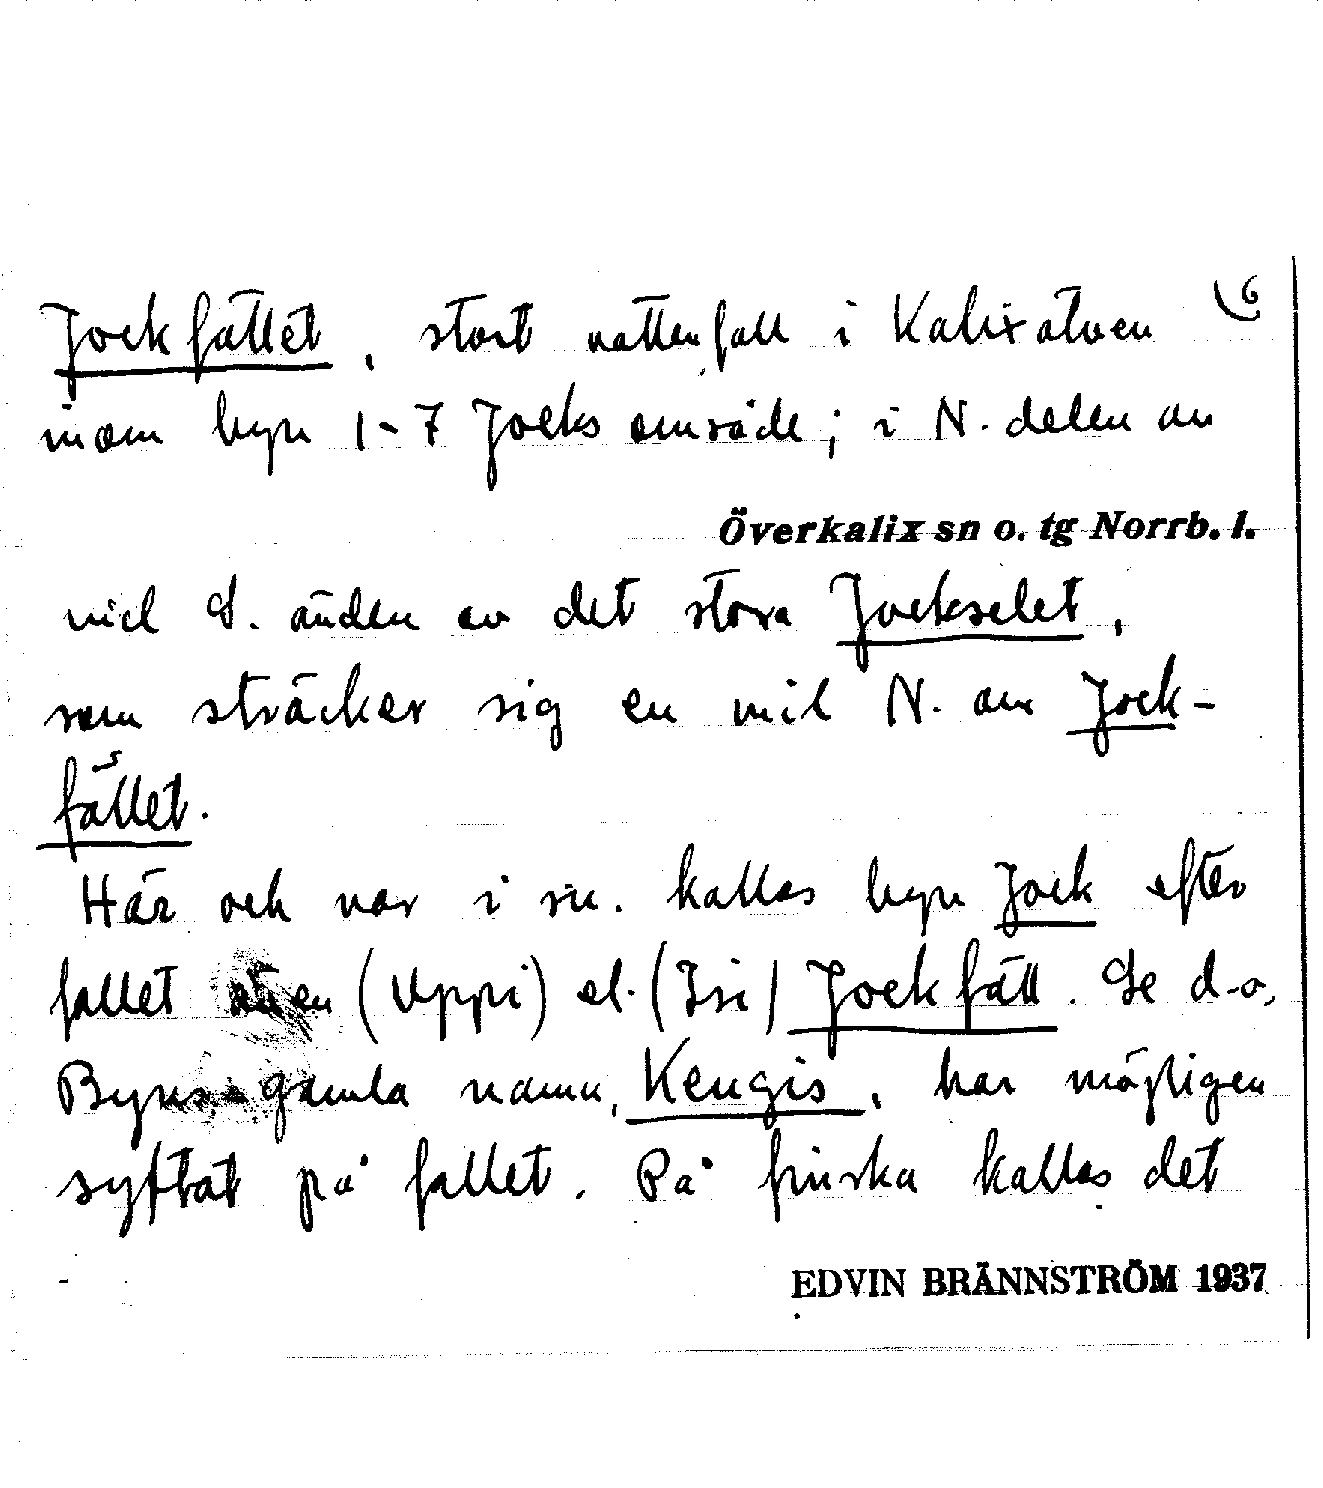 Jockfallet, stort vattenfall i Kalixälven 6
inom byn 1-7 Jocks område; i N. delen av
Överkalix sn o. tg Norrb. l.
vid S. änden av det stora Jockselet,
som sträcker sig en mil N. om Jock-
fållet.
Här och var i sn. kallas byn Jock efter
fallet även (Uppi) el. (Isi) Jockfåll. Se d.o.
Byns gamla namn, Kengis, har möjligen
syftat på fallet. På finska kallas det
EDVIN BRÄNNSTRÖM 1937